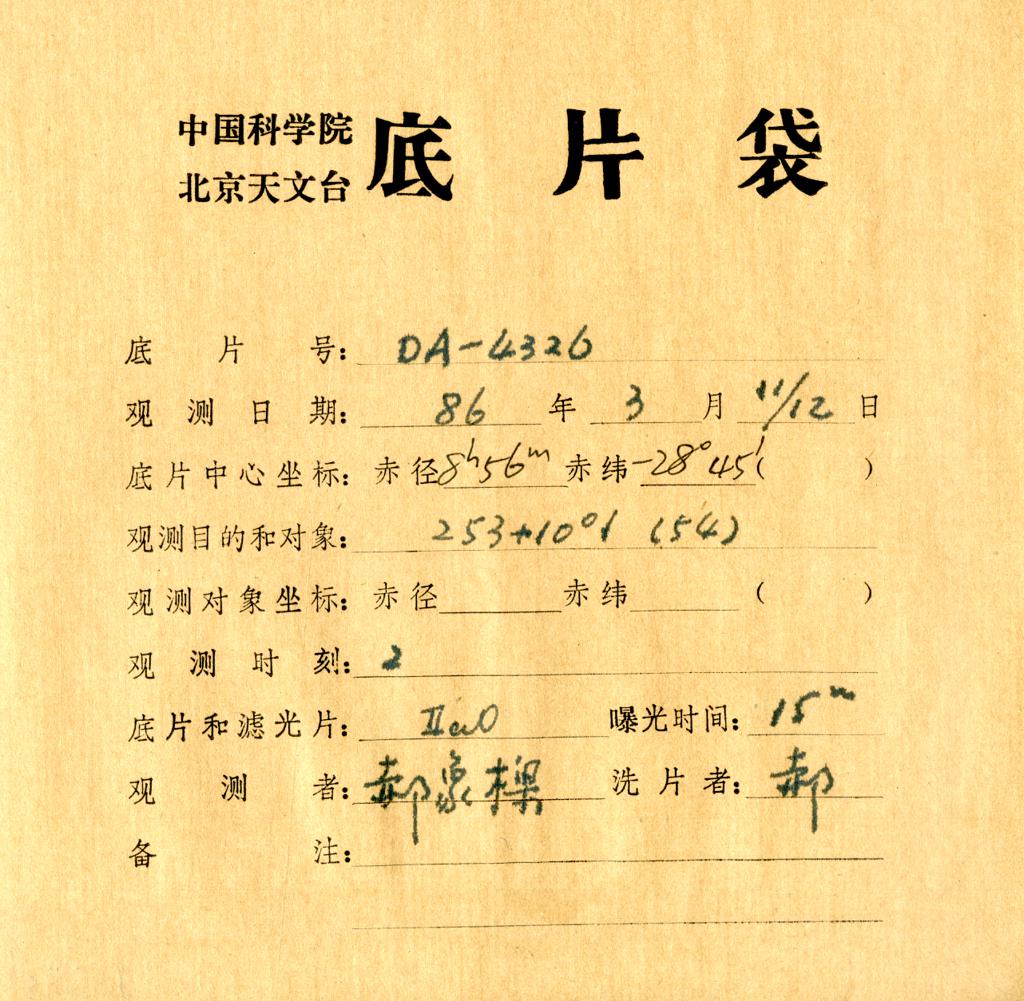 中国科学院
北京天文台
底片袋
底片号: DA-4326
观测日期: 86 年 3 月 11/12 日
底片中心坐标: 赤径 8ʰ56ᵐ 赤纬 -28°45′ ( )
观测目的和对象: 253+10°1 (54)
观测对象坐标: 赤径 赤纬 ( )
观测时刻: 2
底片和滤光片: IIaO 曝光时间: 15ᵐ
观测者: 郝象樑 洗片者: 郝
备注: